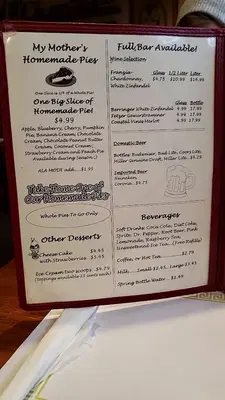 My Mother's
Homemade Pies
One Slice is 1/4 of a Whole Pie
One Big Slice of
Homemade Pie!
$4.99
Apple, Blueberry, Cherry, Pumpkin
Pie, Banana Cream, Chocolate
Cream, Chocolate Peanut Butter
Cream, Coconut Cream,
Strawberry Cream and Peach Pie
Available during (season.)
ALA MODE add.. $1.95
Take Home One of
Our Homemade Pies
Whole Pies To Go Only
Other Desserts
Cheese Cake $4.95
with Strawberries $5.95
Ice Cream two scoops $4.75
(toppings available 25 cents each)
Full Bar Available!
Wine Selection
Glass 1/2 Liter Liter
Franzia- $4.75 $10.99 $16.99
Chardonnay,
White Zinfandel
Glass Bottle
Berringer White Zinfandel 4.99 17.99
Fetzer Gewurztraminer 4.99 17.99
Coastal Vines Merlot 4.99 17.99
Domestic Beer
Bottles: Budweiser, Bud Lite, Coors Lite,
Miller Genuine Craft, Miller Lite $3.75
Imported Beer
Heineken,
Corona, $4.75
Beverages
Soft Drinks: Coca Cola, Diet Coke,
Sprite, Dr. Pepper, Root Beer, Pink
Lemonade, Raspberry Tea,
Unsweetened Ice Tea, (Free Refills)
$2.75
Coffee, or Hot Tea
Milk, Small $2.95 Large $3.95
Spring Bottle Water $1.99